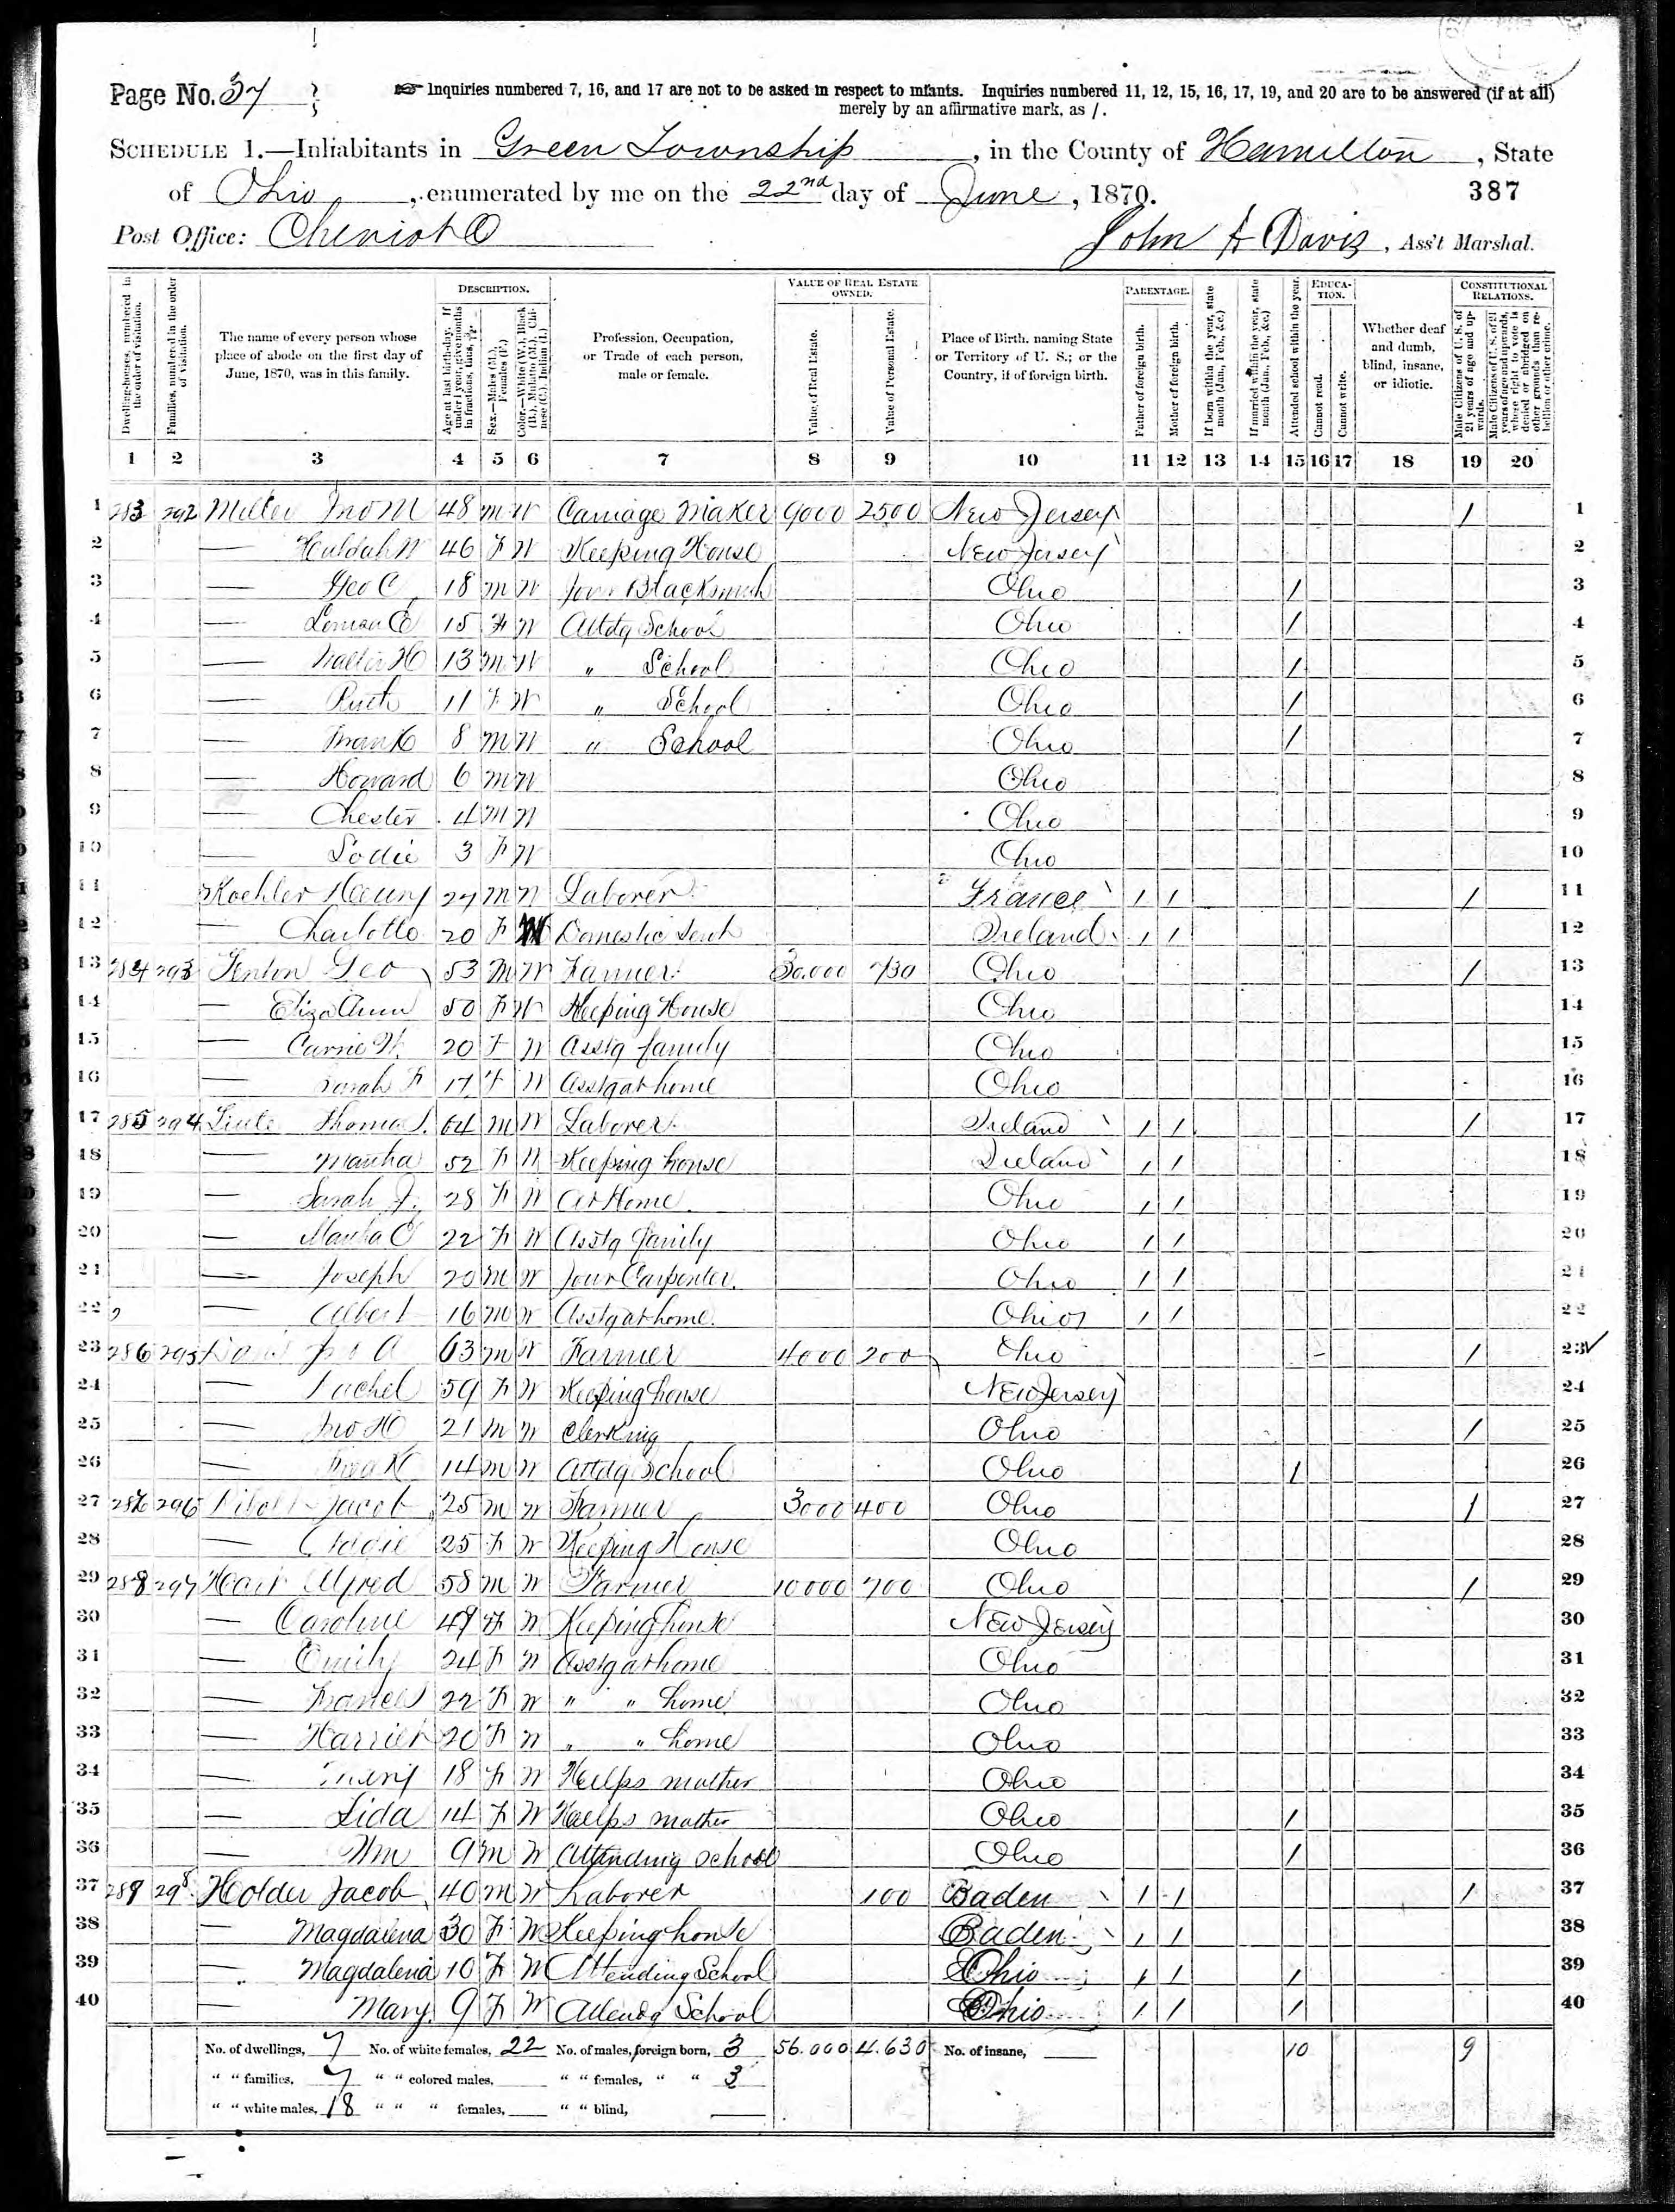 Page No. 37
Inquiries numbered 7, 16, and 17 are not to be asked in respect to infants. Inquiries numbered 11, 12, 15, 16, 17, 19, and 20 are to be answered (if at all)
merely by an affirmative mark, as /.
SCHEDULE 1.—Inhabitants in Green Township, in the County of Hamilton, State
of Ohio, enumerated by me on the 22nd day of June, 1870.
387
Post Office: Cheviot O
John A Davis, Ass't Marshal.
Dwelling-houses, numbered in the order of visitation.
Families, numbered in the order of visitation.
The name of every person whose place of abode on the first day of June, 1870, was in this family.
DESCRIPTION.
Age at last birth-day. If under 1 year, give months in fractions, thus,
Sex.—Males (M.), Females (F.)
Color.—White (W.), Black (B.), Mulatto (M.), Chinese (C.), Indian (I.)
Profession, Occupation, or Trade of each person, male or female.
VALUE OF REAL ESTATE OWNED.
Value of Real Estate.
Value of Personal Estate.
Place of Birth, naming State or Territory of U. S.; or the Country, if of foreign birth.
PARENTAGE.
Father of foreign birth.
Mother of foreign birth.
If born within the year, state month (Jan., Feb., &c.)
If married within the year, state month (Jan., Feb., &c.)
Attended school within the year.
EDUCATION.
Cannot read.
Cannot write.
Whether deaf and dumb, blind, insane, or idiotic.
CONSTITUTIONAL RELATIONS.
Male Citizens of U. S. of 21 years of age and upwards.
Male Citizens of U. S. of 21 years of age and upwards, whose right to vote is denied or abridged on other grounds than rebellion or other crime.
1 2 3 4 5 6 7 8 9 10 11 12 13 14 15 16 17 18 19 20
1 283 292 Miller Jno M 48 M W Carriage Maker 9000 2500 New Jersey / 1
2 — Huldah 46 F W Keeping House New Jersey 2
3 — Geo C 18 M W Jour Blacksmith Ohio / 3
4 — 15 F W Attdg School Ohio / 4
5 — Walter H 13 M W " School Ohio / 5
6 — Ruth 11 F W " School Ohio / 6
7 — Frank 8 M W " School Ohio / 7
8 — Howard 6 M W Ohio 8
9 — Chester 4 M W Ohio 9
10 — 3 F W Ohio 10
11 Koehler Henry 27 M W Laborer France / / / 11
12 — Charlotte 20 F W Domestic Servt Ireland / / 12
13 284 293 Fenton Geo 53 M W Farmer 30.000 730 Ohio / 13
14 — Eliza Ann 50 F W Keeping House Ohio 14
15 — Carrie 20 F W Asstg family Ohio 15
16 — Sarah F 17 F W Asstg at home Ohio 16
17 285 294 Thomas 64 M W Laborer Ireland / / / 17
18 — Martha 52 F W Keeping house Ireland / / 18
19 — Sarah J. 28 F W At Home Ohio / / 19
20 — Martha 22 F W Asstg family Ohio / / 20
21 — Joseph 20 M W Jour Carpenter Ohio / / 21
22 — Albert 16 M W Asstg at home Ohio / / 22
23 286 295 Jno A 63 M W Farmer 4000 200 Ohio / 23
24 — Rachel 59 F W Keeping house New Jersey 24
25 — Jno H 21 M W Clerking Ohio / 25
26 — 14 M W Attdg School Ohio / 26
27 296 Jacob 25 M W Farmer 3000 400 Ohio / 27
28 — Addie 25 F W Keeping House Ohio 28
29 288 297 Alfred 58 M W Farmer 10000 700 Ohio / 29
30 — Caroline 49 F W Keeping house New Jersey 30
31 — Emily 24 F W Asstg at home Ohio 31
32 — Frances 22 F W " " home Ohio 32
33 — Harriet 20 F W " " home Ohio 33
34 — Mary 18 F W Helps mother Ohio 34
35 — Lida 14 F W Helps mother Ohio / 35
36 — Wm 9 M W Attending School Ohio / 36
37 289 298 Holder Jacob 40 M W Laborer 100 Baden / / / 37
38 — Magdalena 30 F W Keeping house Baden / / 38
39 — Magdalena 10 F W Attending School Ohio / / / 39
40 — Mary 9 F W Attendg School Ohio / / / 40
No. of dwellings, 7 No. of white females, 22 No. of males, foreign born, 3 56.000 4.630 No. of insane, 10 9
" " families, 7 " " colored males, " " females, " " 3
" " white males, 18 " " " females, " " blind,